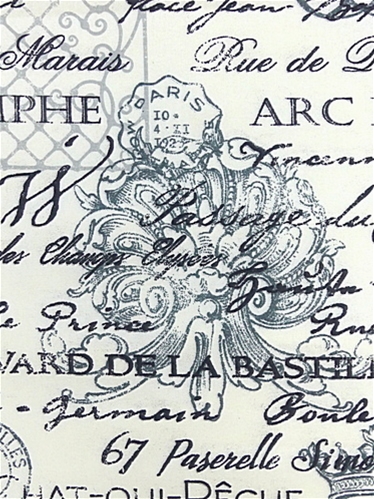 Place Jean-B
Marais Rue de D
PARIS
IPHE ARC
10
4·II
Vincenn
W Passage du
des Champs Elysees
Haute
Le Prince Rue
VARD DE LA BASTILL
- Germain Boule
67 Paserelle Simo
HAT-QUI-PÊCHE